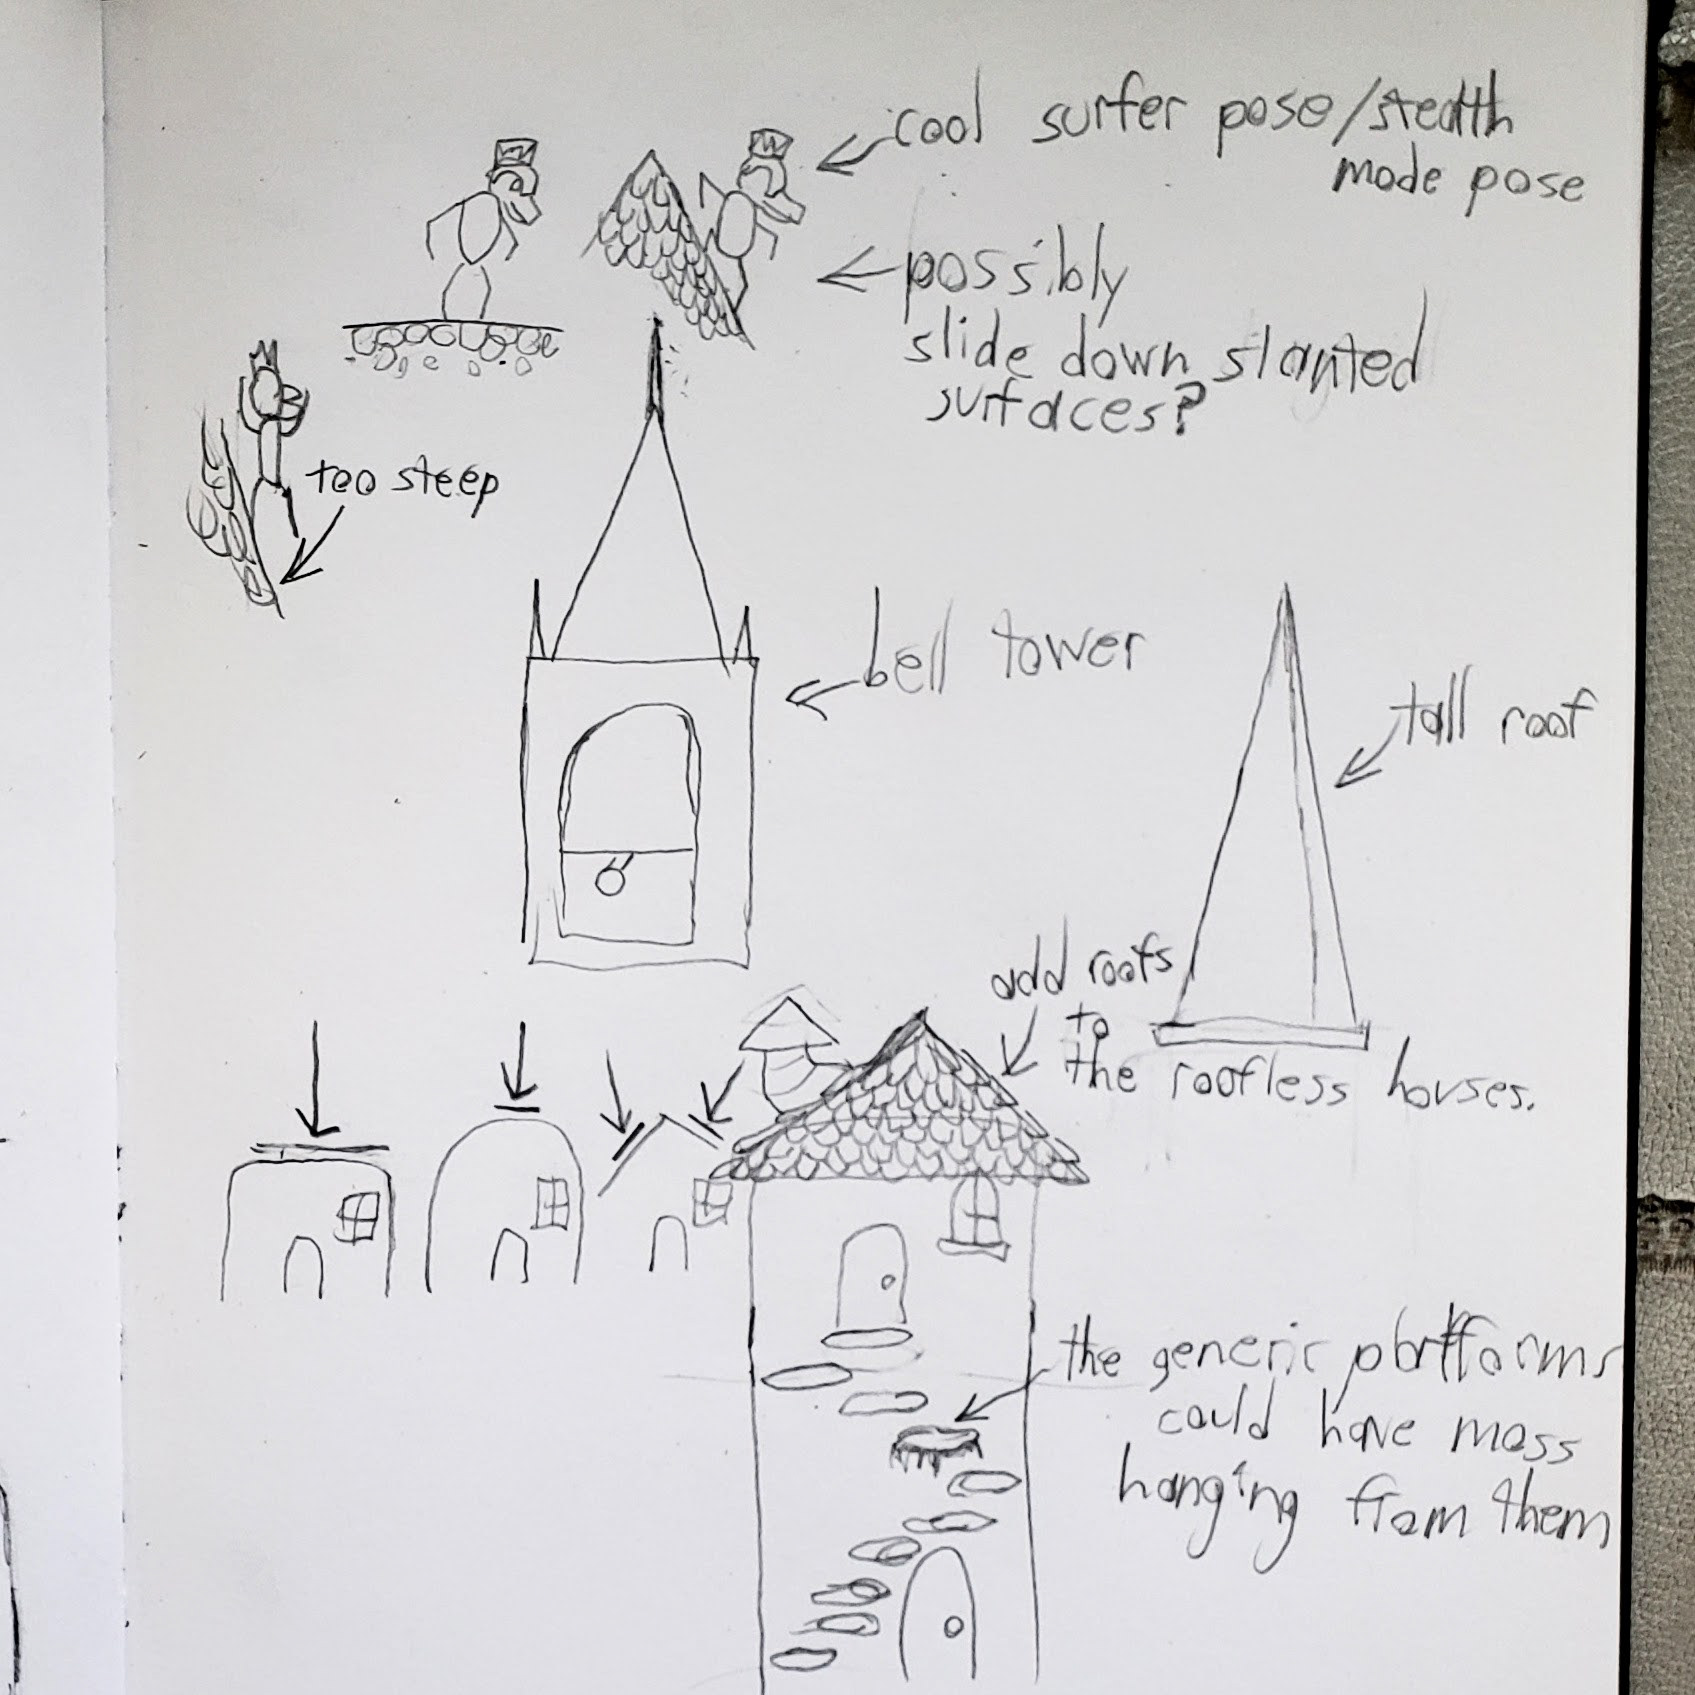 cool surfer pose/stealth
mode pose
possibly
slide down slanted
surfaces?
too steep
bell tower
tall roof
add roofs
to
the roofless houses.
the generic platforms
could have moss
hanging from them